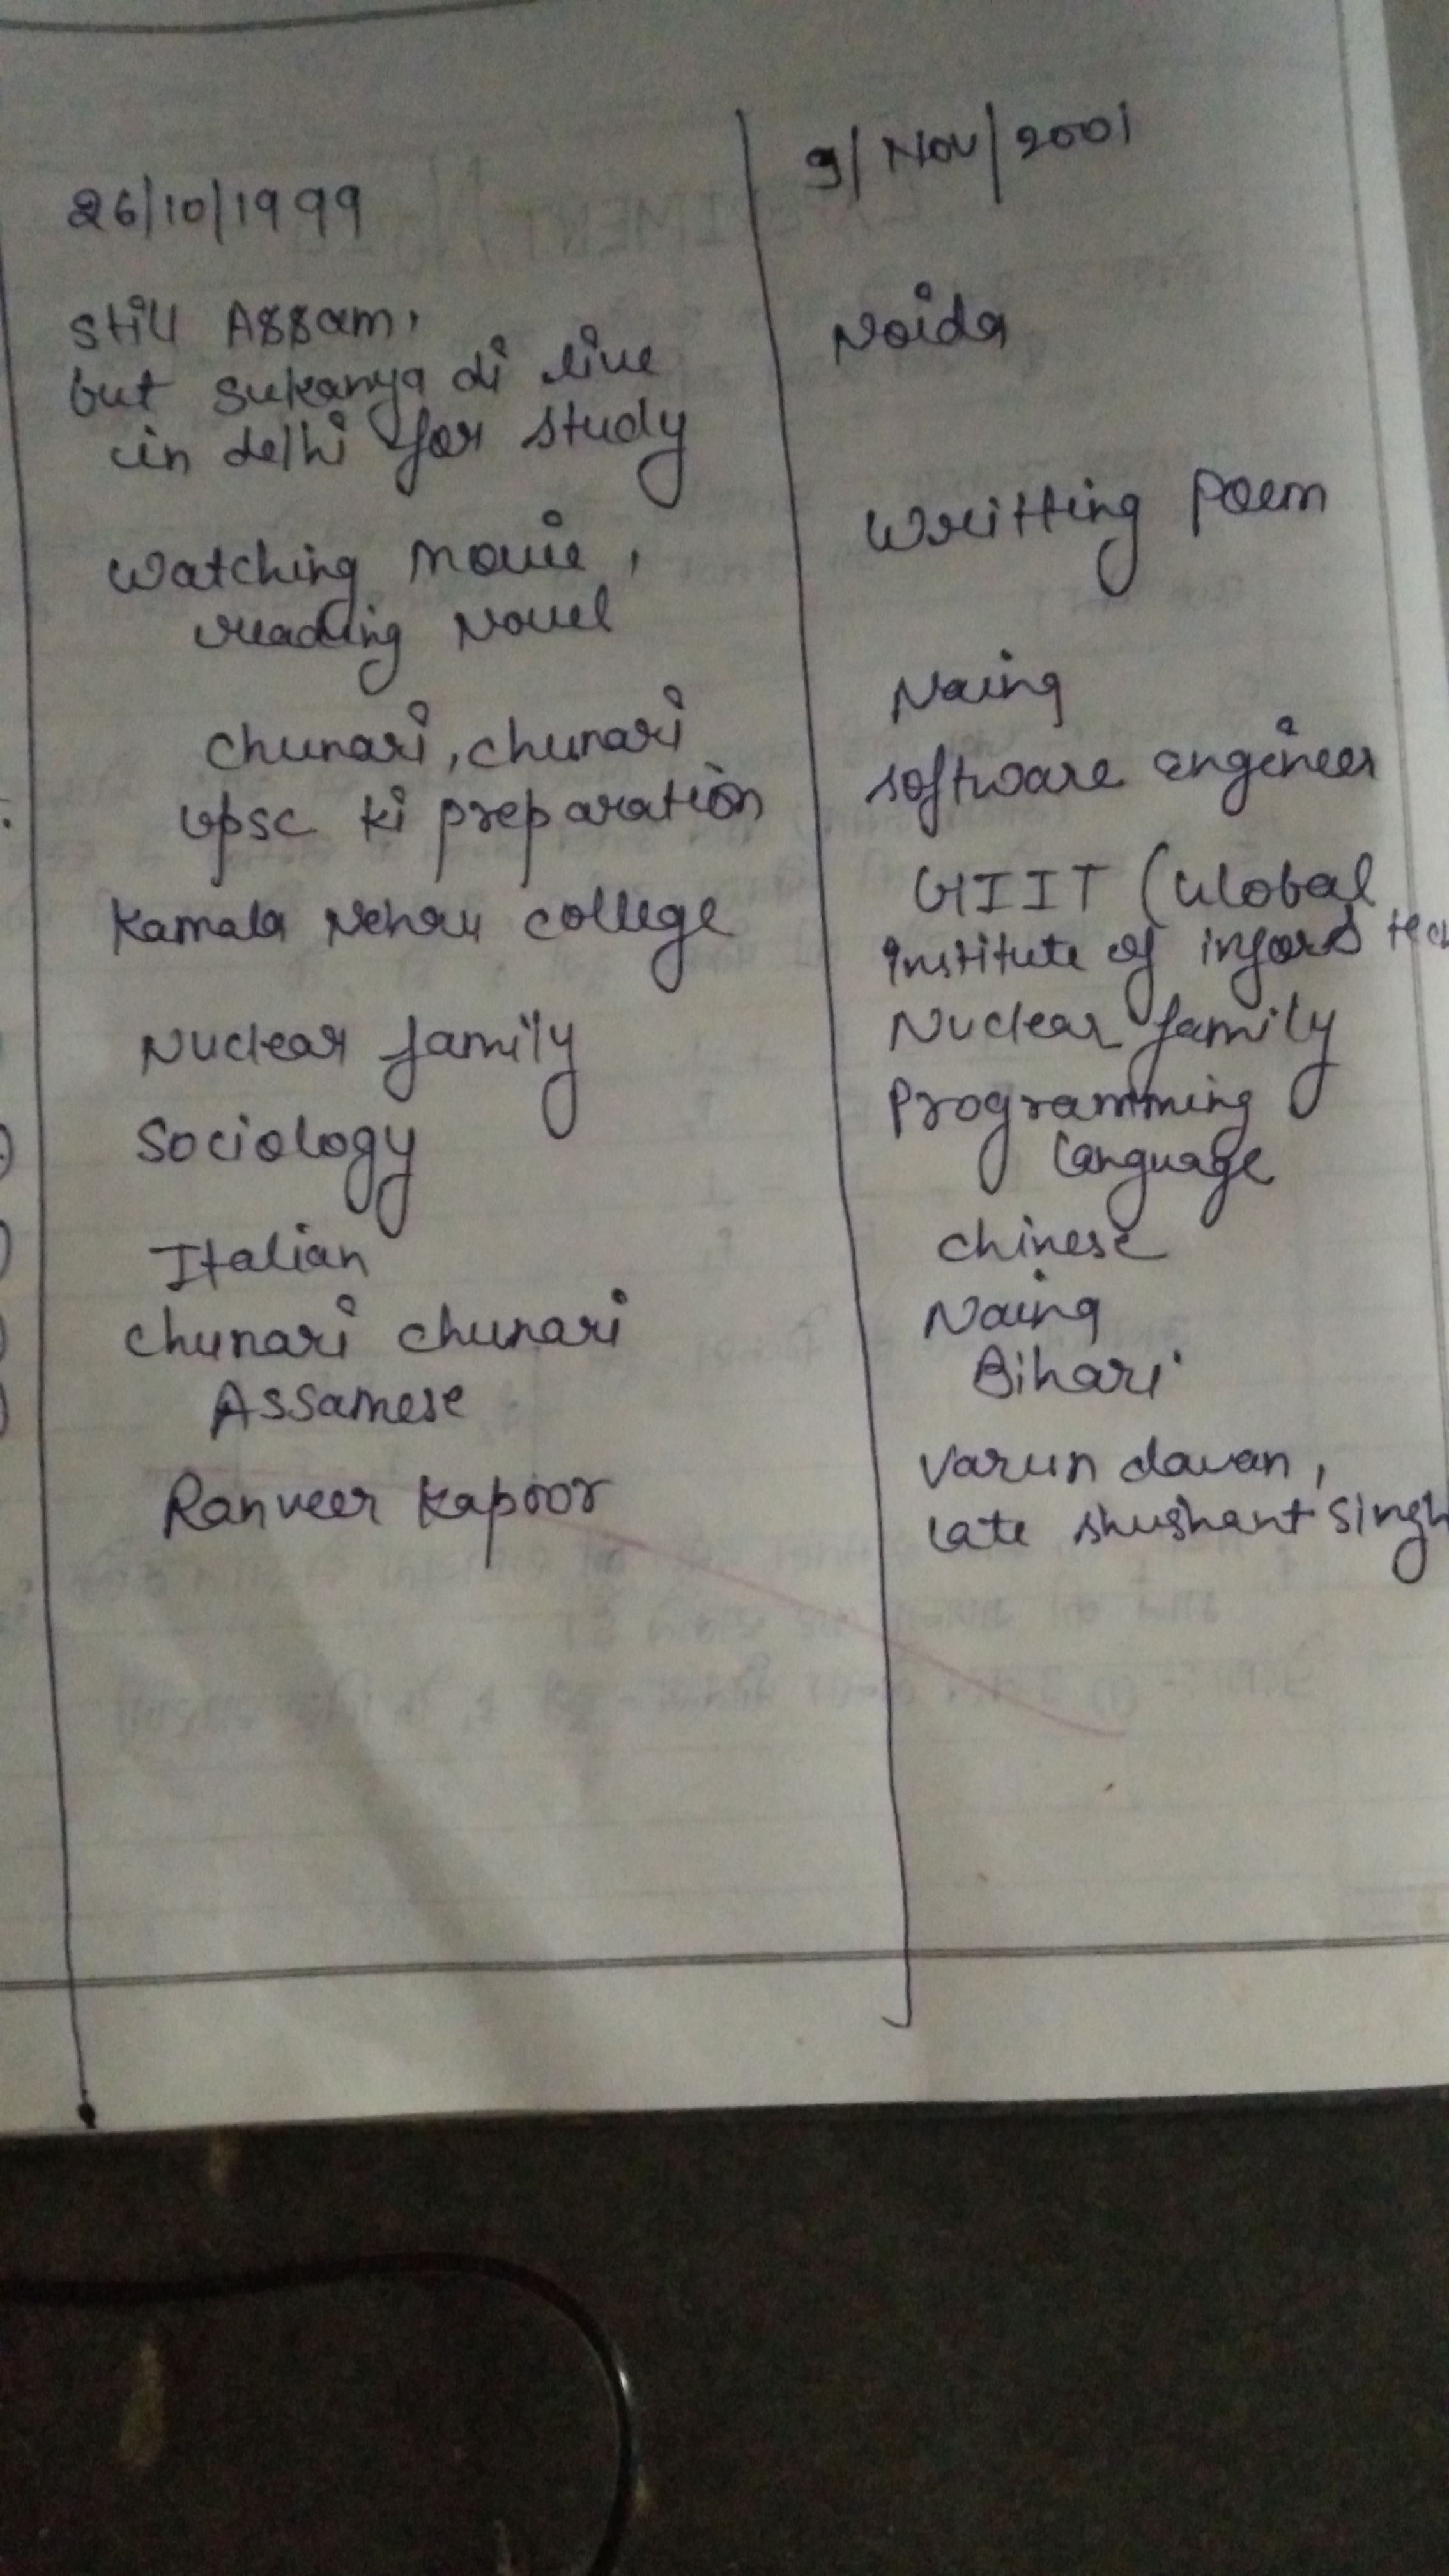 26/10/1999
still Assam,
but sukanya di live
in delhi for study
watching movie,
reading Novel
chunari, chunari
upsc ki preparation
Kamala Nehru college
Nuclear family
Sociology
Italian
chunari chunari
Assamese
Ranveer kapoor
9/Nov/2001
Noida
writting poem
Naina
software engineer
GIIT (Global
institute of infors tech
Nuclear family
programming
language
chinese
Naina
Bihari
varun davan,
late shushant singh